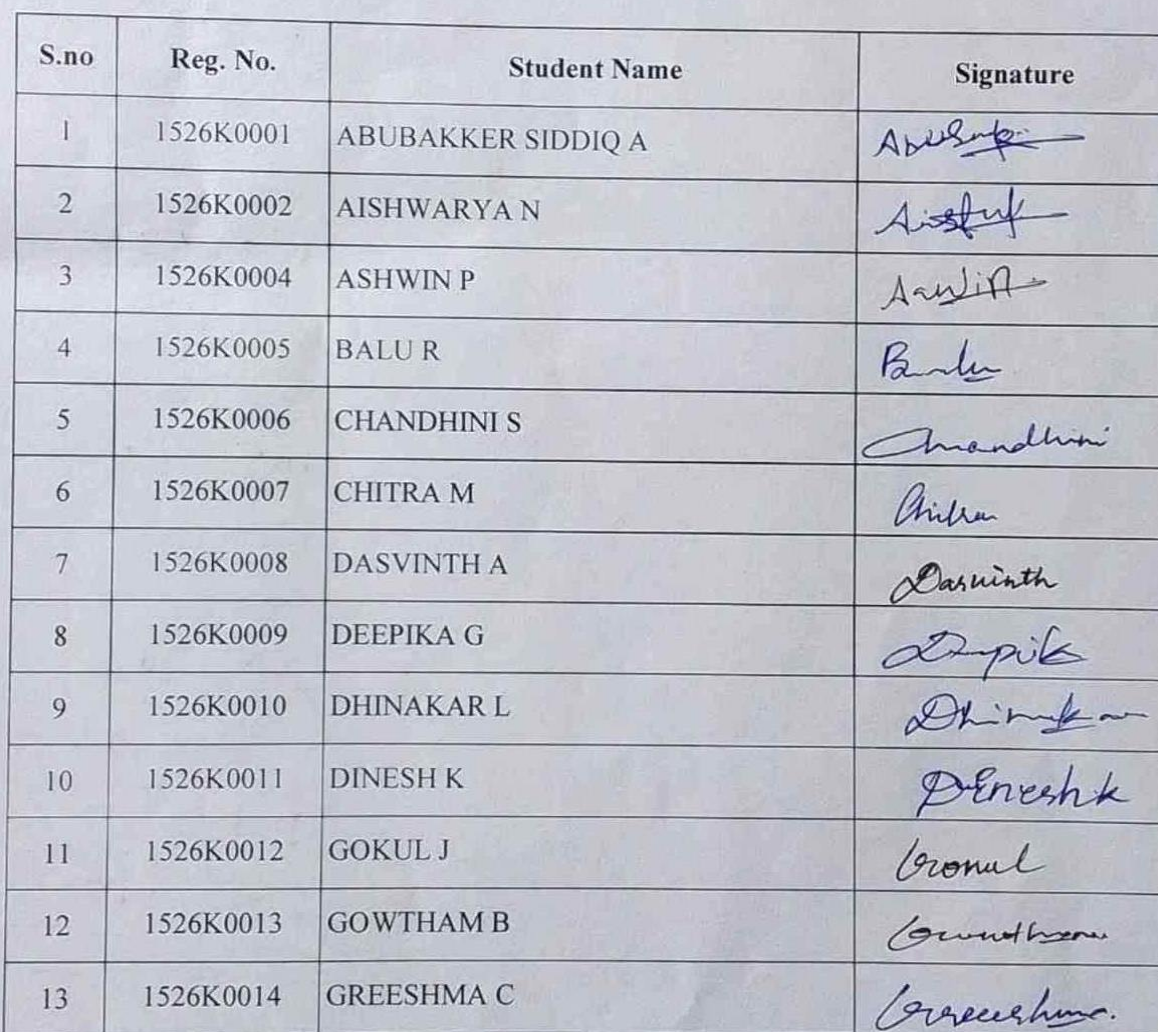 S.no Reg. No. Student Name Signature
1 1526K0001 ABUBAKKER SIDDIQ A
2 1526K0002 AISHWARYA N
3 1526K0004 ASHWIN P
4 1526K0005 BALU R
5 1526K0006 CHANDHINI S Chandhini
6 1526K0007 CHITRA M
7 1526K0008 DASVINTH A Dasvinth
8 1526K0009 DEEPIKA G
9 1526K0010 DHINAKAR L
10 1526K0011 DINESH K Dineshk
11 1526K0012 GOKUL J
12 1526K0013 GOWTHAM B
13 1526K0014 GREESHMA C